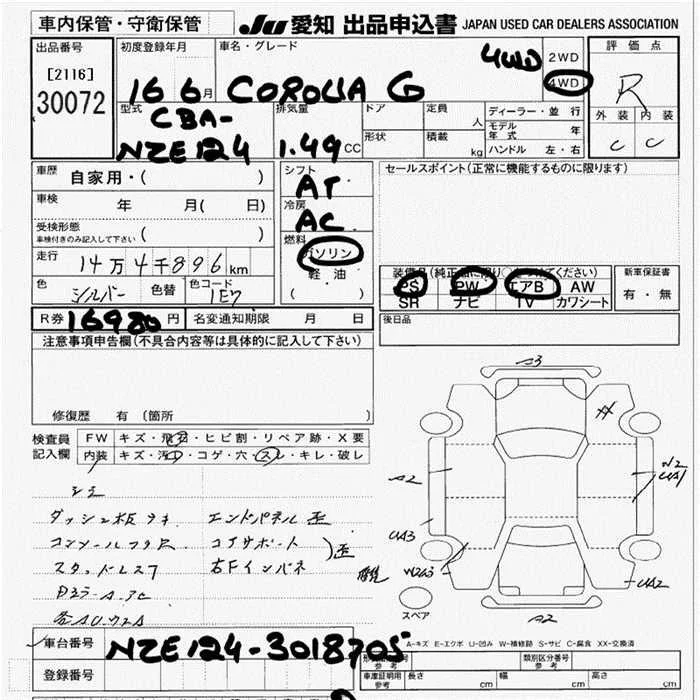 車内保管・守衛保管 JU 愛知 出品申込書 JAPAN USED CAR DEALERS ASSOCIATION
出品番号 初度登録年月 車名・グレード 4WD 2WD 評価点
[2116] 16 6月 COROLLA G 4WD R
30072 型式 排気量 ドア 定員 人 ディーラー・並行 外装 内装
CBA- 形状 積載 kg モデル年式 年 C C
NZE124 1.49 CC ハンドル 左・右
車歴 自家用・( ) シフト AT セールスポイント(正常に機能するものに限ります)
車検 年 月( 日) 冷房 AC
受検形態 ( )
車検付きのみ記入して下さい
走行 14万4千896km 燃料 ガソリン
軽油
( )
色 シルバー 色替 色コード 1E7
装備品(純正品に限り)○をつけてください 新車保証書
PS PW エアB AW 有・無
SR ナビ TV カワシート
R券 16980円 名変通知期限 月 日 後日品
注意事項申告欄(不具合内容等は具体的に記入して下さい)
修復歴 有(箇所 )
検査員記入欄 FW キズ・飛石・ヒビ割・リペア跡・X要
内装 キズ・汚れ・コゲ・穴・スレ・キレ・破レ
シミ
ダッシュ板ラキ エンドパネル歪
コアサポート )歪
スタッドレス7 右Fインパネ
A3
A2
UA3
W2A3
UA2
A2
スペア
A-キズ E-エクボ U-凹み W-補修跡 S-サビ C-腐食 XX-交換済
車台番号 NZE124-3018705
登録番号
類別区分番号
参考
車庫証明用
参考
長さ cm 幅 cm 高さ cm